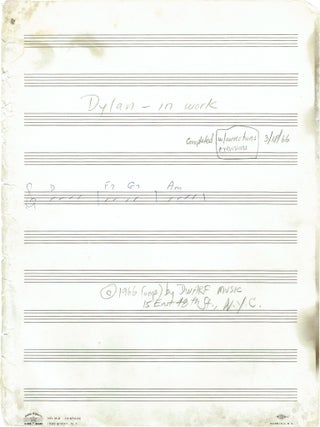 Dylan – in work
Completed w/corrections 3/18/66
& revisions
D F7 G7 Am
© 1966 (unp) by DWARF MUSIC
15 East 48th St., N.Y.C.